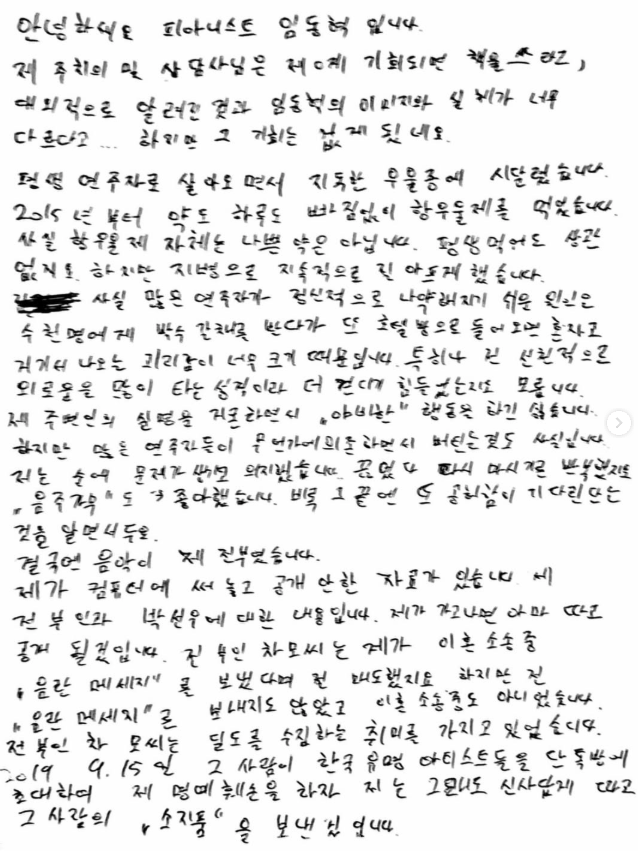 안녕하세요 피아니스트 임동혁 입니다.
제 주치의 및 상담사님은 제에게 기회되면 책을 쓰라고,
대외적으로 알려진것과 임동혁의 이미지와 실제가 너무
다르다고... 하지만 그 기회는 없게 됬네요.
평생 연주자로 살아오면서 지독한 우울증에 시달렸습니다.
2015년 부터 약도 하루도 빠짐없이 항우울제를 먹었습니다.
사실 항우울제 자체는 나쁜 약은 아닙니다. 평생먹어도 상관
없지요. 하지만 지병으로 지속적으로 전 아프게 했습니다.
사실 많은 연주자가 정신적으로 나약해지기 쉬운 원인은
수천명에게 박수 갈채를 받다가 또 호텔방으로 돌아오면 혼자고
거기서 나오는 괴리감이 너무 크기 때문입니다. 특히나 전 선천적으로
외로움을 많이 타는 성격이라 더 견디기 힘들었는지도 모릅니다.
제 주변인의 실명을 거론하면서 „야비한“ 행동은 하기 싫습니다.
하지만 많은 연주자들이 무언가에 의존하면서 버틴는것도 사실입니다.
저는 술에 문제가 생기고 의지했습니다. 끊었다 다시 마시기를 반복했지요
„음주가무“도 좋아했습니다. 비록 그 끝엔 또 공허함이 기다린다는
것을 알면서두요.
결국엔 음악이 제 전부였습니다.
제가 컴퓨터에 써 놓고 공개 안한 자료가 있습니다. 제
전 부인과 박선우에 대한 내용입니다. 제가 가고나면 아마 따로
공개 될것입니다. 전 부인 차모씨는 제가 이혼 소송 중
„음란 메세지“를 보냈다며 절 매도했지요 하지만 전
„음란 메세지“를 보내지도 않았고 이혼 소송중도 아니었습니다.
전부인 차 모씨는 딜도를 수집하는 취미를 가지고 있었습니다.
2019 9.15일 그 사람이 한국 유명 아티스트들을 단톡방에
초대하여 제 명예훼손을 하자 저는 그래도 신사답게 따로
그 사람의 „소지품“을 보낸것 입니다.